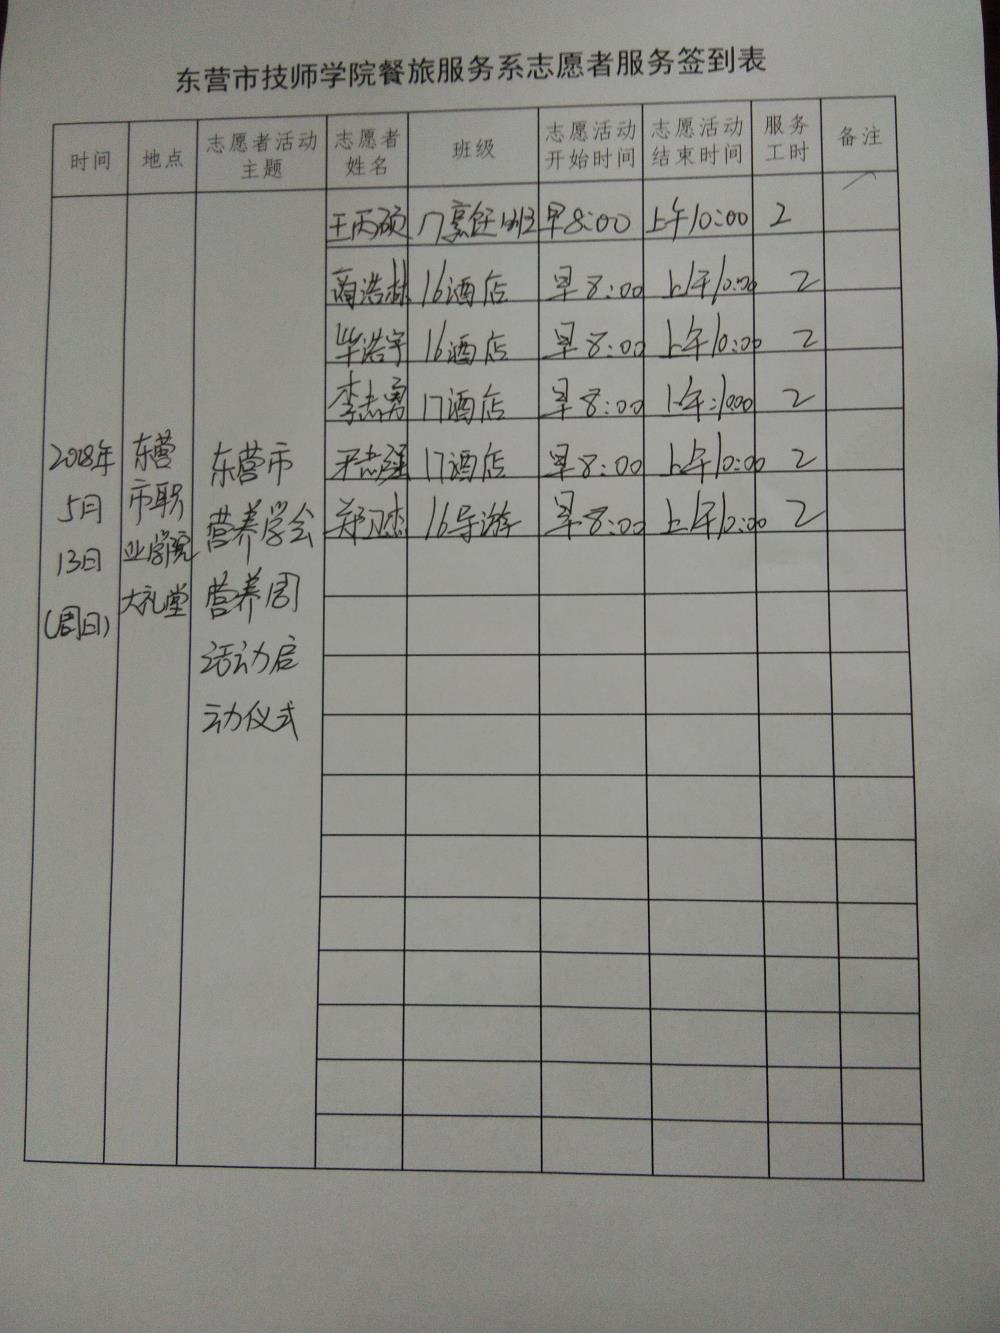 东营市技师学院餐旅服务系志愿者服务签到表
时间 地点 志愿者活动主题 志愿者姓名 班级 志愿活动开始时间 志愿活动结束时间 服务工时 备注
王丙硕 17烹饪 班 早8:00 上午10:00 2
浩林 16酒店 早8:00 上午10:00 2
毕浩宇 16酒店 早8:00 上午10:00 2
李志勇 17酒店 早8:00 上午:1000 2
志强 17酒店 早8:00 上午10:00 2
郑卫杰 16导游 早8:00 上午10:00 2
2018年
5月
13日
(周日)
东营
市职
业学院
大礼堂
东营市
营养学会
营养周
活动启
动仪式